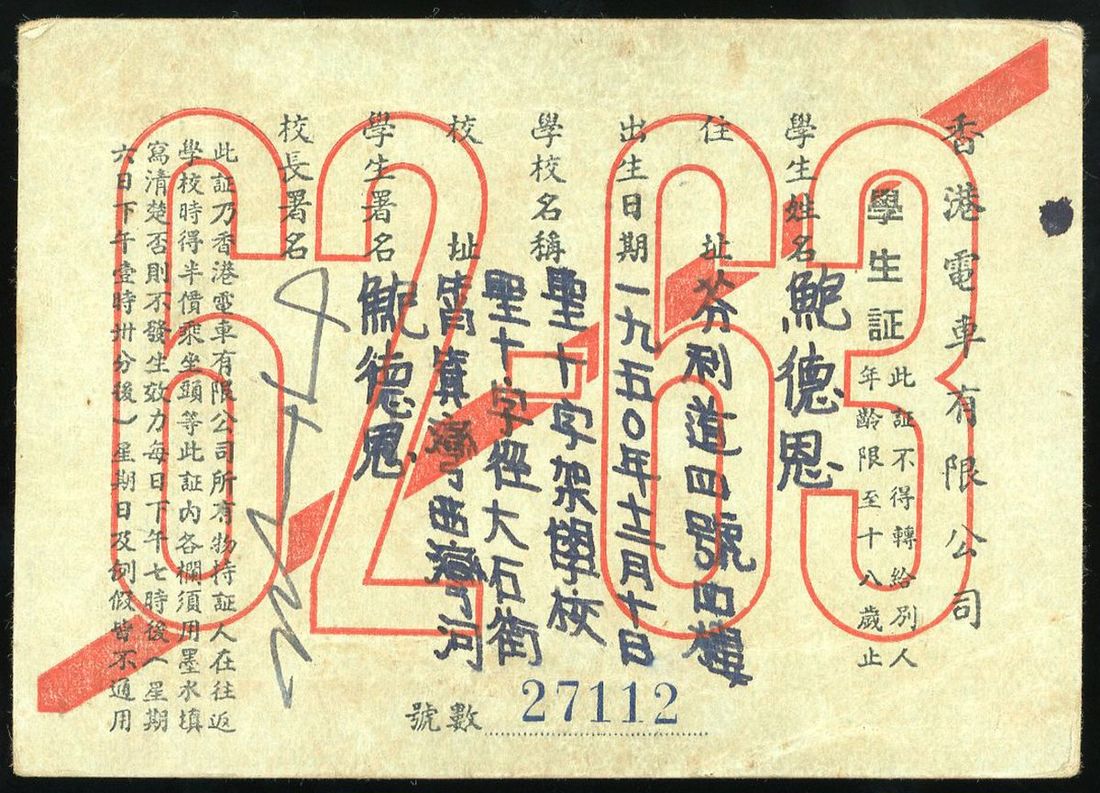 香港電車有限公司
學生証
此証不得轉給別人
年齡限至十八歲止
學生姓名 鮑德恩
住址 芬利道四號四樓
出生日期 一九五〇年十二月十日
學校名稱 聖十字架學校
聖十字徑大石街
校址 筲箕灣西灣河
學生署名 鮑德恩
校長署名
此証乃香港電車有限公司所有物持証人在往返
學校時得半價乘坐頭等此証內各欄須用墨水填
寫清楚否則不發生效力每日下午七時後(星期
六日下午壹時卅分後)星期日及例假皆不適用
號數 27112
62-63